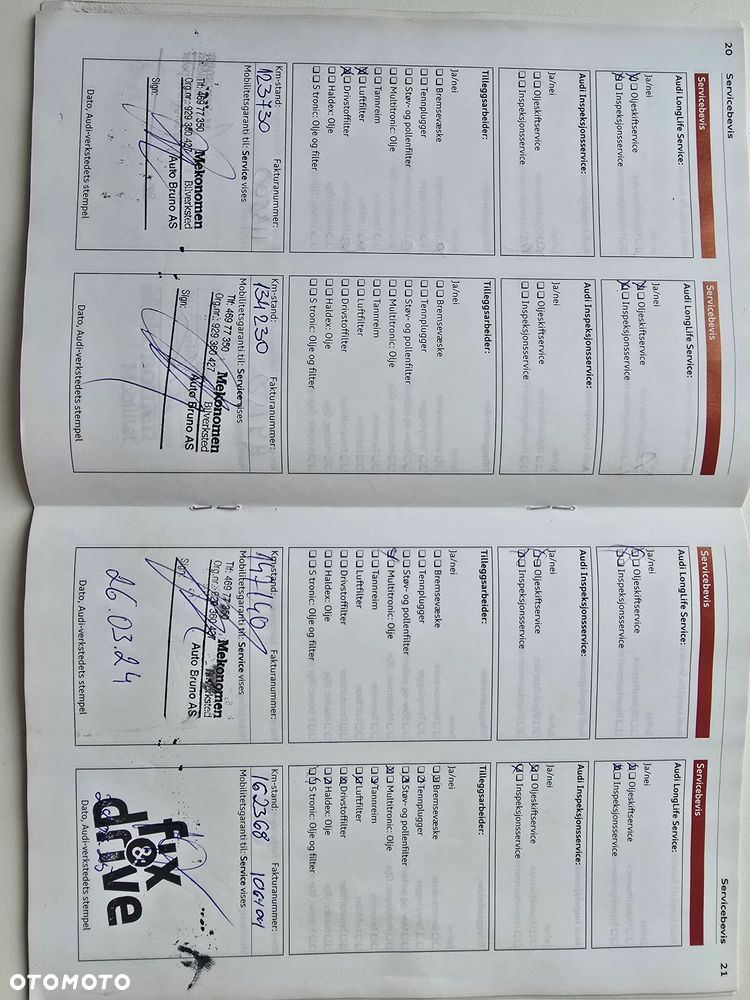 20 Servicebevis
Servicebevis
Audi LongLife Service:
Ja/nei
Oljeskiftservice
Inspeksjonsservice
Audi Inspeksjonsservice:
Ja/nei
Oljeskiftservice
Inspeksjonsservice
Tilleggsarbeider:
Ja/nei
Bremsevæske
Tennplugger
Støv- og pollenfilter
Multitronic: Olje
Tannreim
Luftfilter
Drivstoffilter
Haldex: Olje
S tronic: Olje og filter
Km-stand: Fakturanummer:
123730
Mobilitetsgaranti til: Service vises
Mekonomen
Bilverksted
Tlf: 469 77 350
Org.nr.: 929 360 427
Auto Bruno AS
Sign:
Dato, Audi-verkstedets stempel
Servicebevis
Audi LongLife Service:
Ja/nei
Oljeskiftservice
Inspeksjonsservice
Audi Inspeksjonsservice:
Ja/nei
Oljeskiftservice
Inspeksjonsservice
Tilleggsarbeider:
Ja/nei
Bremsevæske
Tennplugger
Støv- og pollenfilter
Multitronic: Olje
Tannreim
Luftfilter
Drivstoffilter
Haldex: Olje
S tronic: Olje og filter
Km-stand: Fakturanummer:
134230
Mobilitetsgaranti til: Service vises
Mekonomen
Bilverksted
Tlf: 469 77 350
Org.nr.: 929 360 427
Auto Bruno AS
Sign:
Dato, Audi-verkstedets stempel
Servicebevis
Audi LongLife Service:
Ja/nei
Oljeskiftservice
Inspeksjonsservice
Audi Inspeksjonsservice:
Ja/nei
Oljeskiftservice
Inspeksjonsservice
Tilleggsarbeider:
Ja/nei
Bremsevæske
Tennplugger
Støv- og pollenfilter
Multitronic: Olje
Tannreim
Luftfilter
Drivstoffilter
Haldex: Olje
S tronic: Olje og filter
Km-stand: Fakturanummer:
147140
Mobilitetsgaranti til: Service vises
Mekonomen
Bilverksted
Tlf: 469 77 350
Org.nr.: 929 360 427
Auto Bruno AS
Sign:
26.03.24
Dato, Audi-verkstedets stempel
Servicebevis 21
Servicebevis
Audi LongLife Service:
Ja/nei
Oljeskiftservice
Inspeksjonsservice
Audi Inspeksjonsservice:
Ja/nei
Oljeskiftservice
Inspeksjonsservice
Tilleggsarbeider:
Ja/nei
Bremsevæske
Tennplugger
Støv- og pollenfilter
Multitronic: Olje
Tannreim
Luftfilter
Drivstoffilter
Haldex: Olje
S tronic: Olje og filter
Km-stand: Fakturanummer:
162368 106404
Mobilitetsgaranti til: Service vises
fix
&
drive
Dato, Audi-verkstedets stempel
OTOMOTO